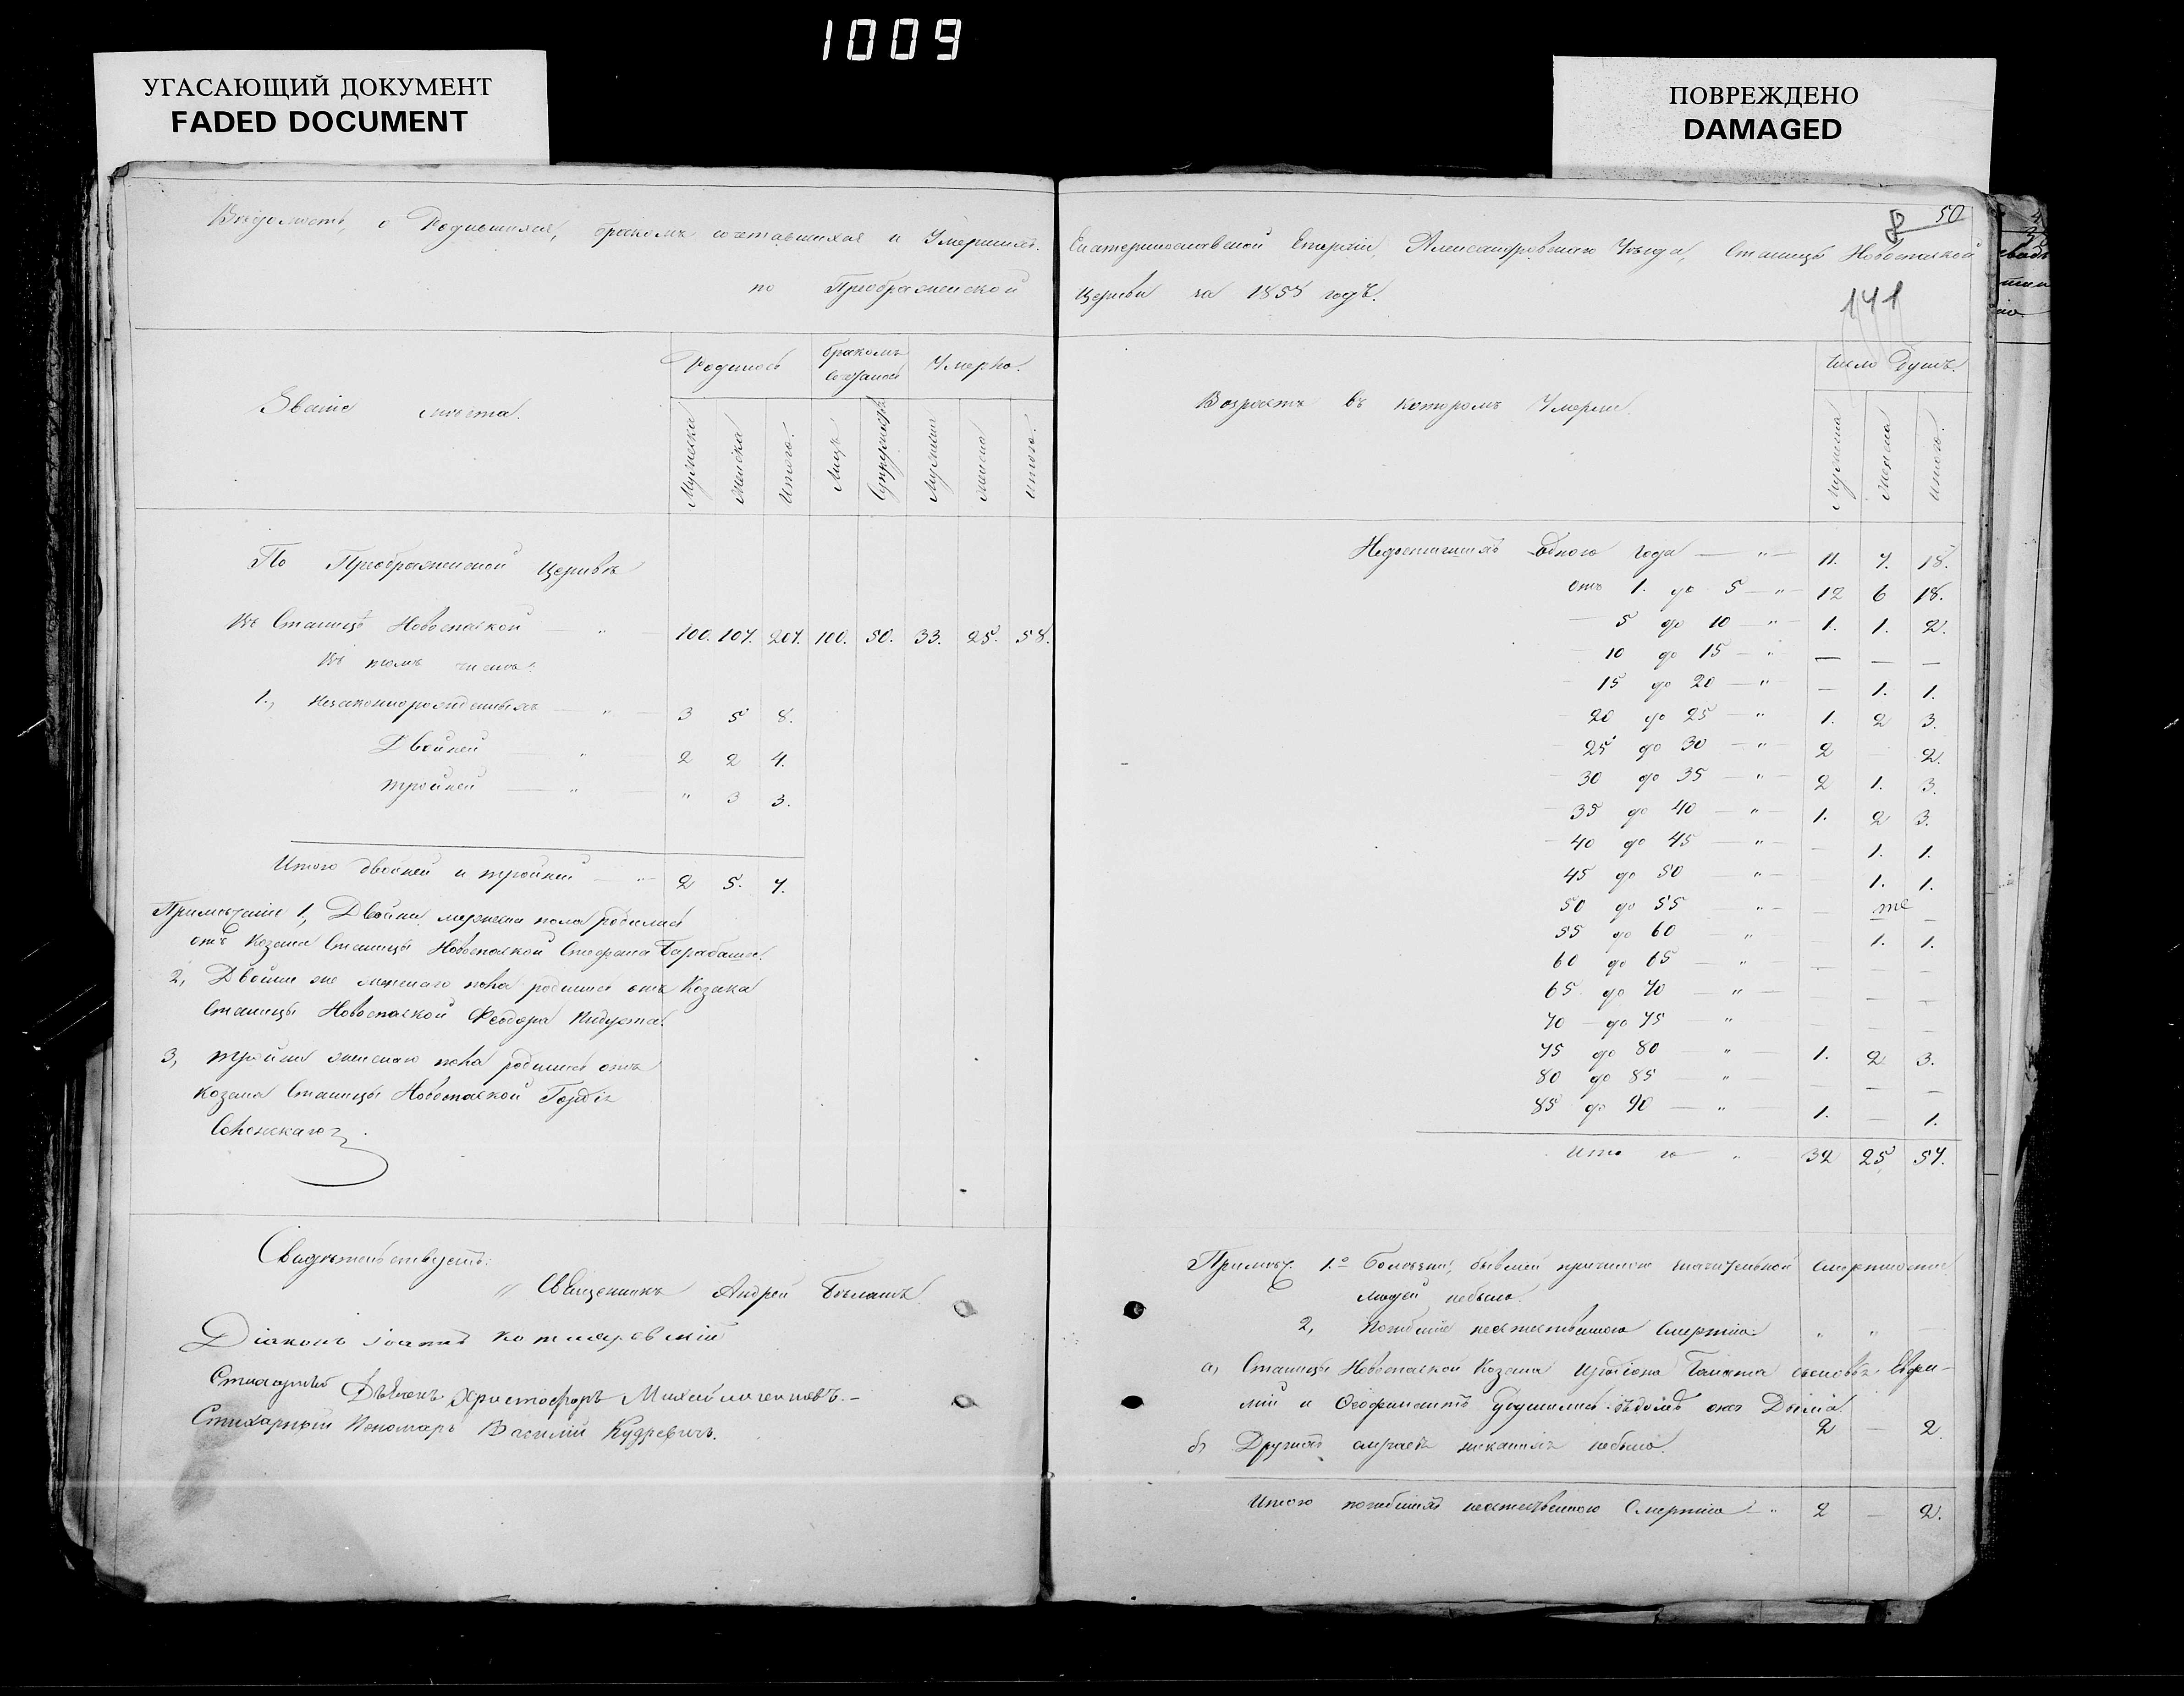 1009
УГАСАЮЩИЙ ДОКУМЕНТ
FADED DOCUMENT
ПОВРЕЖДЕНО
DAMAGED
50
141
Вѣдомость, о Родившихся, бракомъ сочетавшихся и Умершихъ.
по Преображенской
Екатеринославской Епархіи, Александровскаго Уѣзда, Станицы Новоспаской
Церкви за 1858 годъ.
Званіе мѣста.
Родилось
бракомъ
Умерло.
Мужеска
Женска
Итого.
Лицъ
Супружествъ
Мужеска
Женска
Итого.
По Преображенской Церквѣ
Въ Станицѣ Новоспаской — " — 100. 107. 207. 100. 50. 33. 25. 58.
Въ томъ числѣ:
1., Незаконнорожденныхъ — " — 3 5 8.
Двойней " 2 2 4.
тройней — " — " 3 3.
Итого двойней и тройней — " 2 5. 7.
Примѣчаніе 1, Двойни мужеска пола родились
отъ Козака Станицы Новоспаской Стефана Барабаша.
2, Двойни же женскаго пола родились отъ Козака
Станицы Новоспаской Феодора
3, тройни женскаго пола родились отъ
Козака Станицы Новоспаской Гордія
Свидѣтельствуютъ:
Священникъ Андрей
Діаконъ Іоаннъ Котляровскій
Стихарный Дьячокъ Христофоръ
Стихарный Пономарь Василій Кудревичъ.
Возрастъ въ которомъ Умерли.
Число Душъ.
Мужеска
Женска
Итого.
Недостигшихъ Одного года — " — 11. 7. 18.
отъ 1. до 5 — " — 12 6 18.
5 до 10 — " — 1. 1. 2.
10 до 15 — " — — —
15 до 20 — " — 1. 1.
20 до 25 — " 1. 2 3.
25 до 30 — " — 2 2.
30 до 35 — " — 2 1. 3.
35 до 40 — " — 1. 2 3.
40 до 45 — " — 1. 1.
45 до 50 " — 1. 1.
50 до 55 " — —
55 до 60 " — 1. 1.
60 до 65 — " — — —
65 до 70 — " — — —
70 до 75 — " — — —
75 до 80 — " — 1. 2 3.
80 до 85 — " — — —
85 до 90 — " — 1. — 1.
Итого " 32 25 57.
Примѣч. 1. Болѣзни, бывшей причиною значительной смертности
людей небыло.
2, Погибшіе неестественною Смертію " "
а, Станицы Новоспаской Козака сыновья
и 2 — 2.
б, Другихъ небыло.
Итого погибшихъ неестественною Смертію — " 2 — 2.